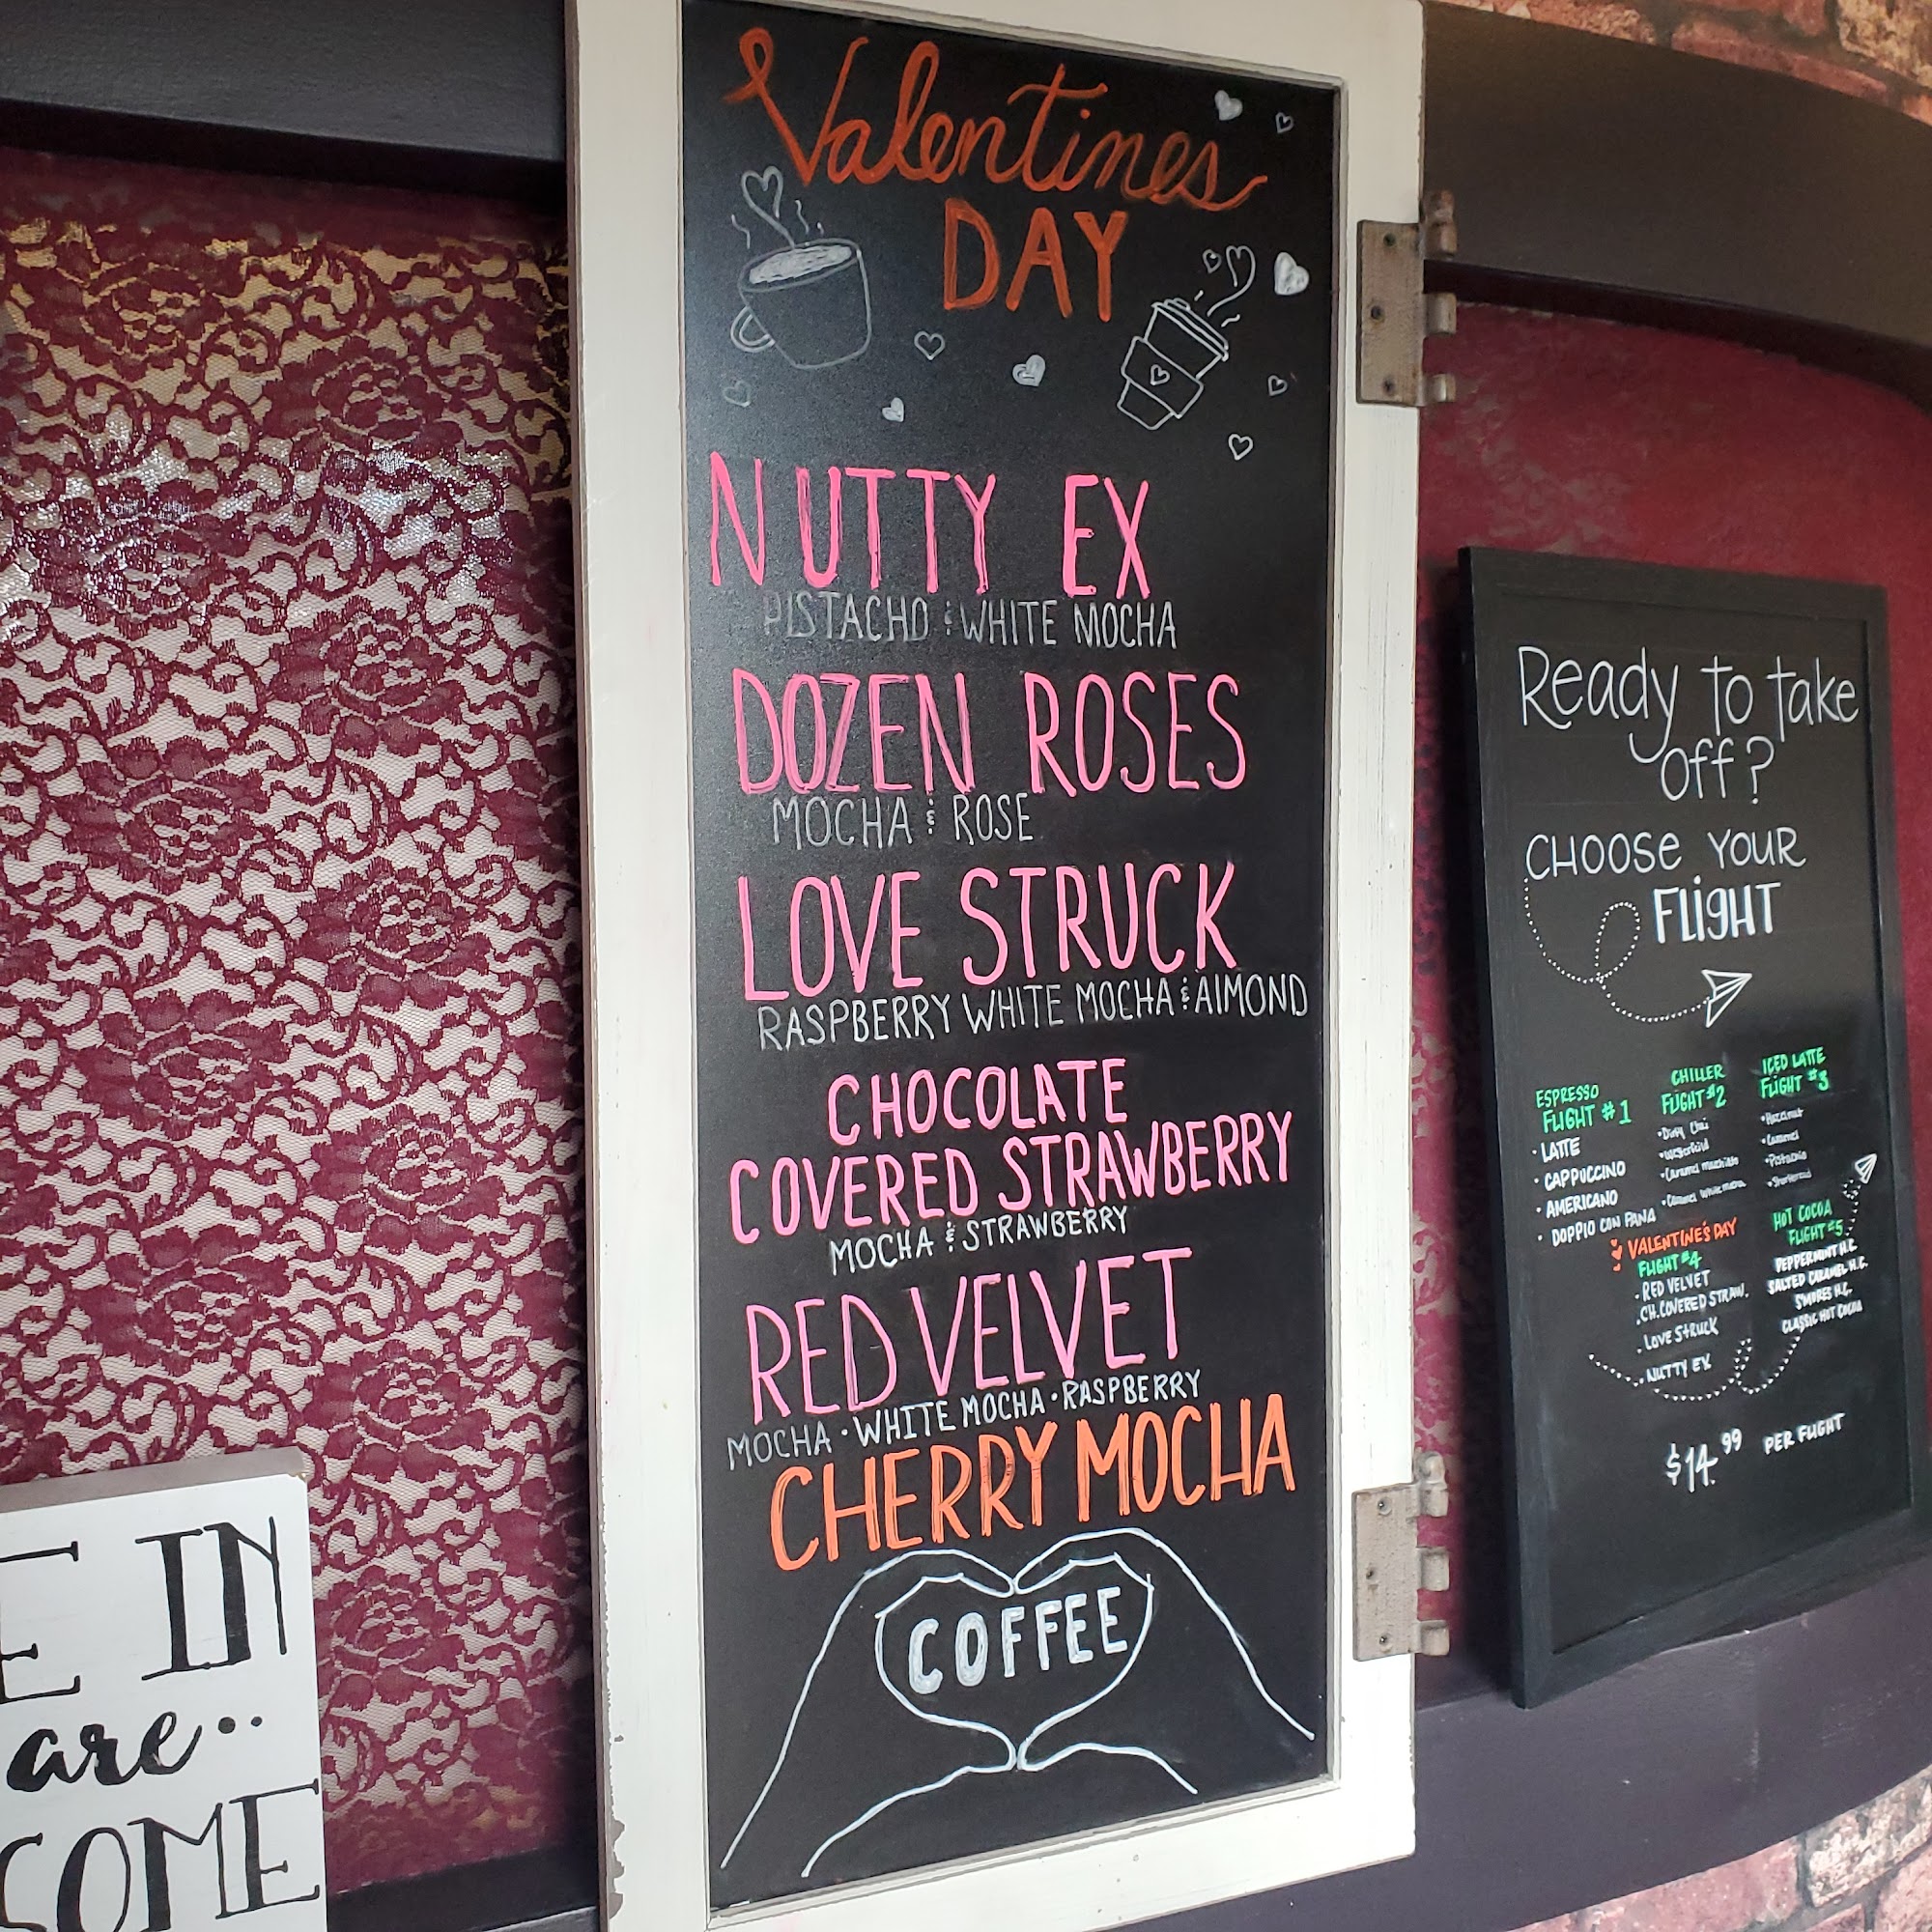 Valentines
DAY
NUTTY EX
PISTACHO & WHITE MOCHA
DOZEN ROSES
MOCHA & ROSE
LOVE STRUCK
RASPBERRY WHITE MOCHA & AlMOND
CHOCOLATE
COVERED STRAWBERRY
MOCHA & STRAWBERRY
RED VELVET
MOCHA • WHITE MOCHA • RASPBERRY
CHERRY MOCHA
COFFEE
Ready To Take
Off?
CHOOSe YOUR
FLigHT
ESPRESSO
FLIGHT #1
• LATTE
• CAPPUCCINO
• AMERICANO
• DOPPIO CON PANA
CHILLER
FLIGHT #2
• Dirty Chai
• Caramel
• Caramel White mocha
ICED LATTE
FLIGHT #3
• Hazelnut
• Caramel
• Pistachio
• Shortbread
VALENTINE'S DAY
FLIGHT #4
• RED VELVET
• CH. COVERED STRAW.
• LOVE STRUCK
• NUTTY EX
HOT COCOA
FLIGHT #5
PEPPERMINT H.C.
SALTED CARAMEL H.C.
S'MORES H.C.
CLASSIC HOT COCOA
$14.99 PER FLIGHT
E IN
are..
SOME